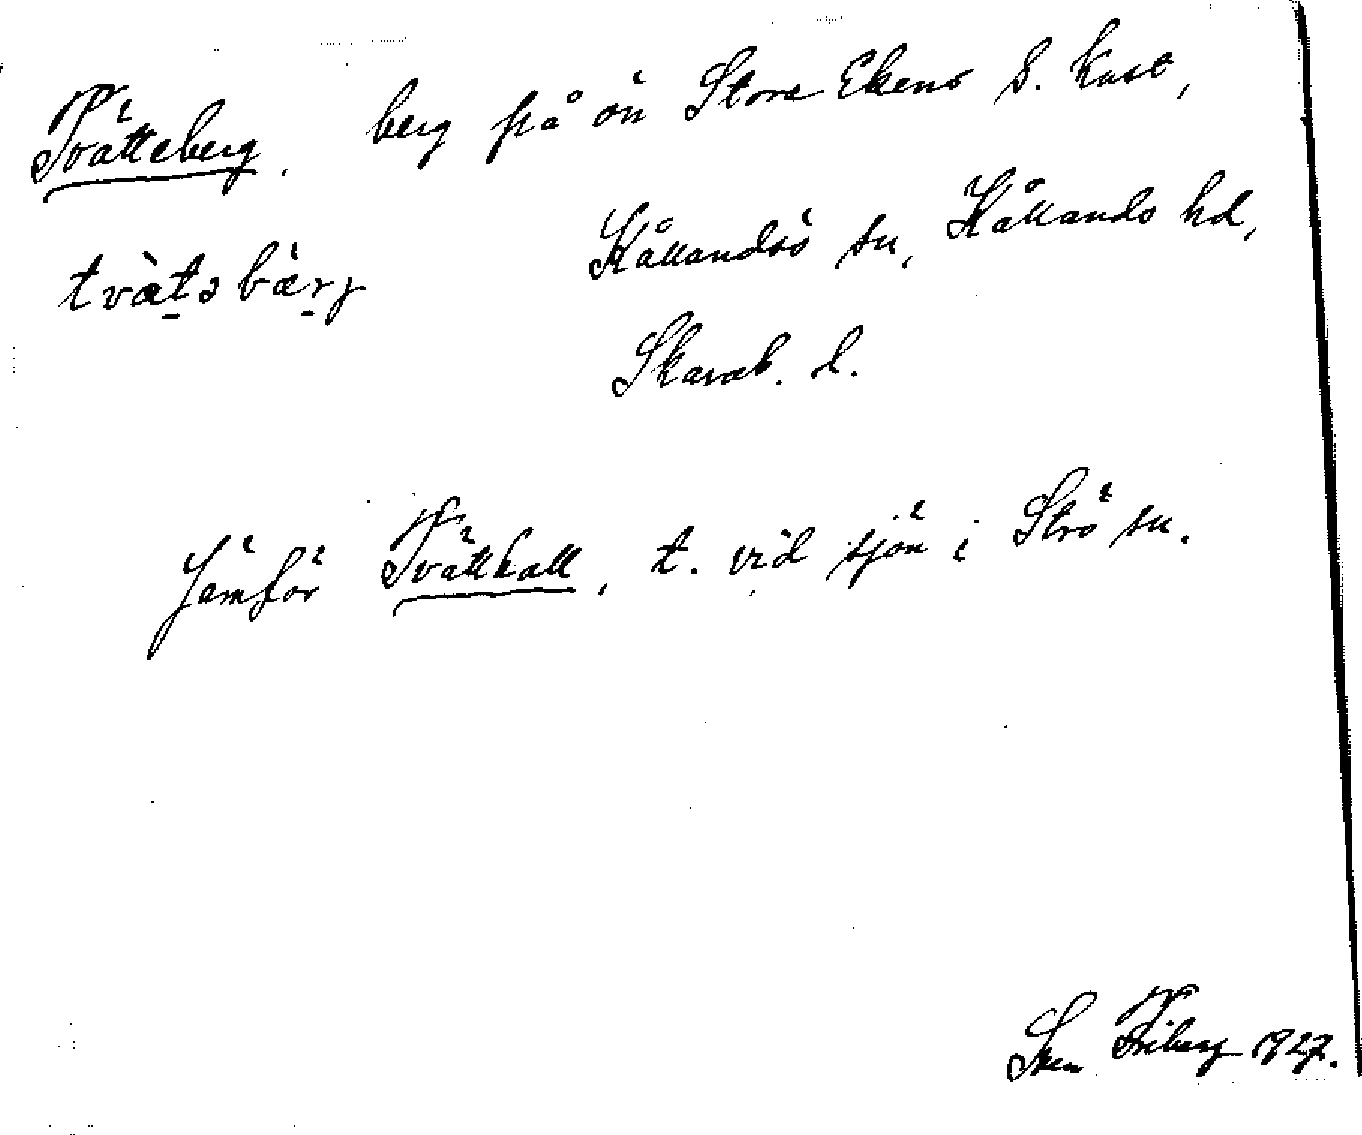 Tvätteberg, berg på ön Stora Ekens S. kust,
tvæ̀təbær̀j Kållandsö sn, Kållands hd,
Skarab. l.
Jämför Tvätthall, t. vid sjön i Strö sn.
Sven Friberg 1927.